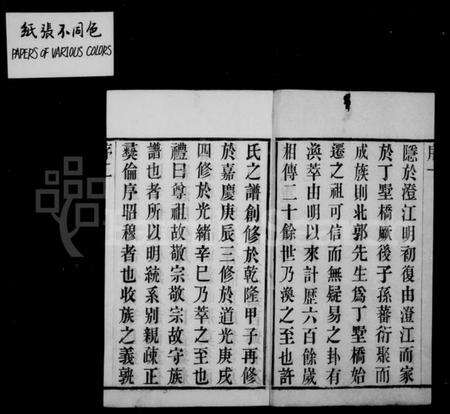 紙張不同色
PAPERS OF VARIOUS COLORS
隱於澄江明初復由澄江而家
於丁墅橋厥後子孫蕃衍聚而
成族則北郭先生爲丁墅橋始
遷之祖可信而無疑易之卦有
渙萃由明以來計歷六百餘歲
相傳二十餘世乃渙之至也許
氏之譜創修於乾隆甲子再修
於嘉慶庚辰三修於道光庚戌
四修於光緒辛巳乃萃之至也
禮曰尊祖故敬宗敬宗故守族
譜也者所以明統系別親疎正
彝倫序昭穆者也收族之義